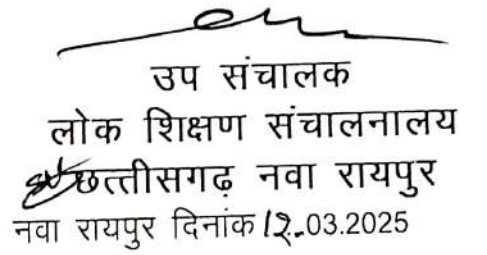 उप संचालक
लोक शिक्षण संचालनालय
छत्तीसगढ़ नवा रायपुर
नवा रायपुर दिनांक 12.03.2025